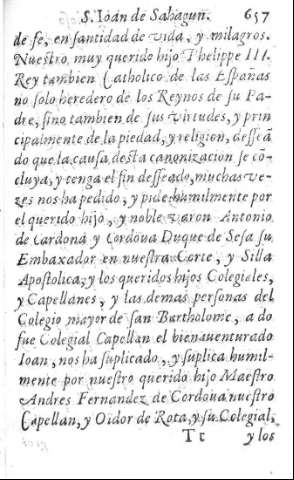 S. Ioan de Sahagun. 657
de fe, en santidad de vida, y milagros.
Nuestro muy querido hijo Phelippe III.
Rey tambien Catholico de las Españas
no solo heredero de los Reynos de su Pa-
dre, sino tambien de sus virtudes, y prin
cipalmente de la piedad, y religion, desseã
do que la causa desta canonizacion se cõ-
cluya, y tenga el fin desseado, muchas ve-
zes nos ha pedido, y pide humilmente por
el querido hijo, y noble varon Antonio
de Cardona y Cordoua Duque de Sesa su
Embaxador en nuestra Corte, y Silla
Apostolica, y los queridos hijos Colegiales,
y Capellanes, y las demas personas del
Colegio mayor de san Bartholome, a do
fue Colegial Capellan el bienauenturado
Ioan, nos ha suplicado, y suplica humil-
mente por nuestro querido hijo Maestro
Andres Fernandez de Cordoua nuestro
Capellan, y Oidor de Rota, y su Colegial,
Tt y los